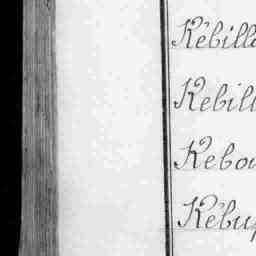 Kébill
Kebill
Kebo
Kébu